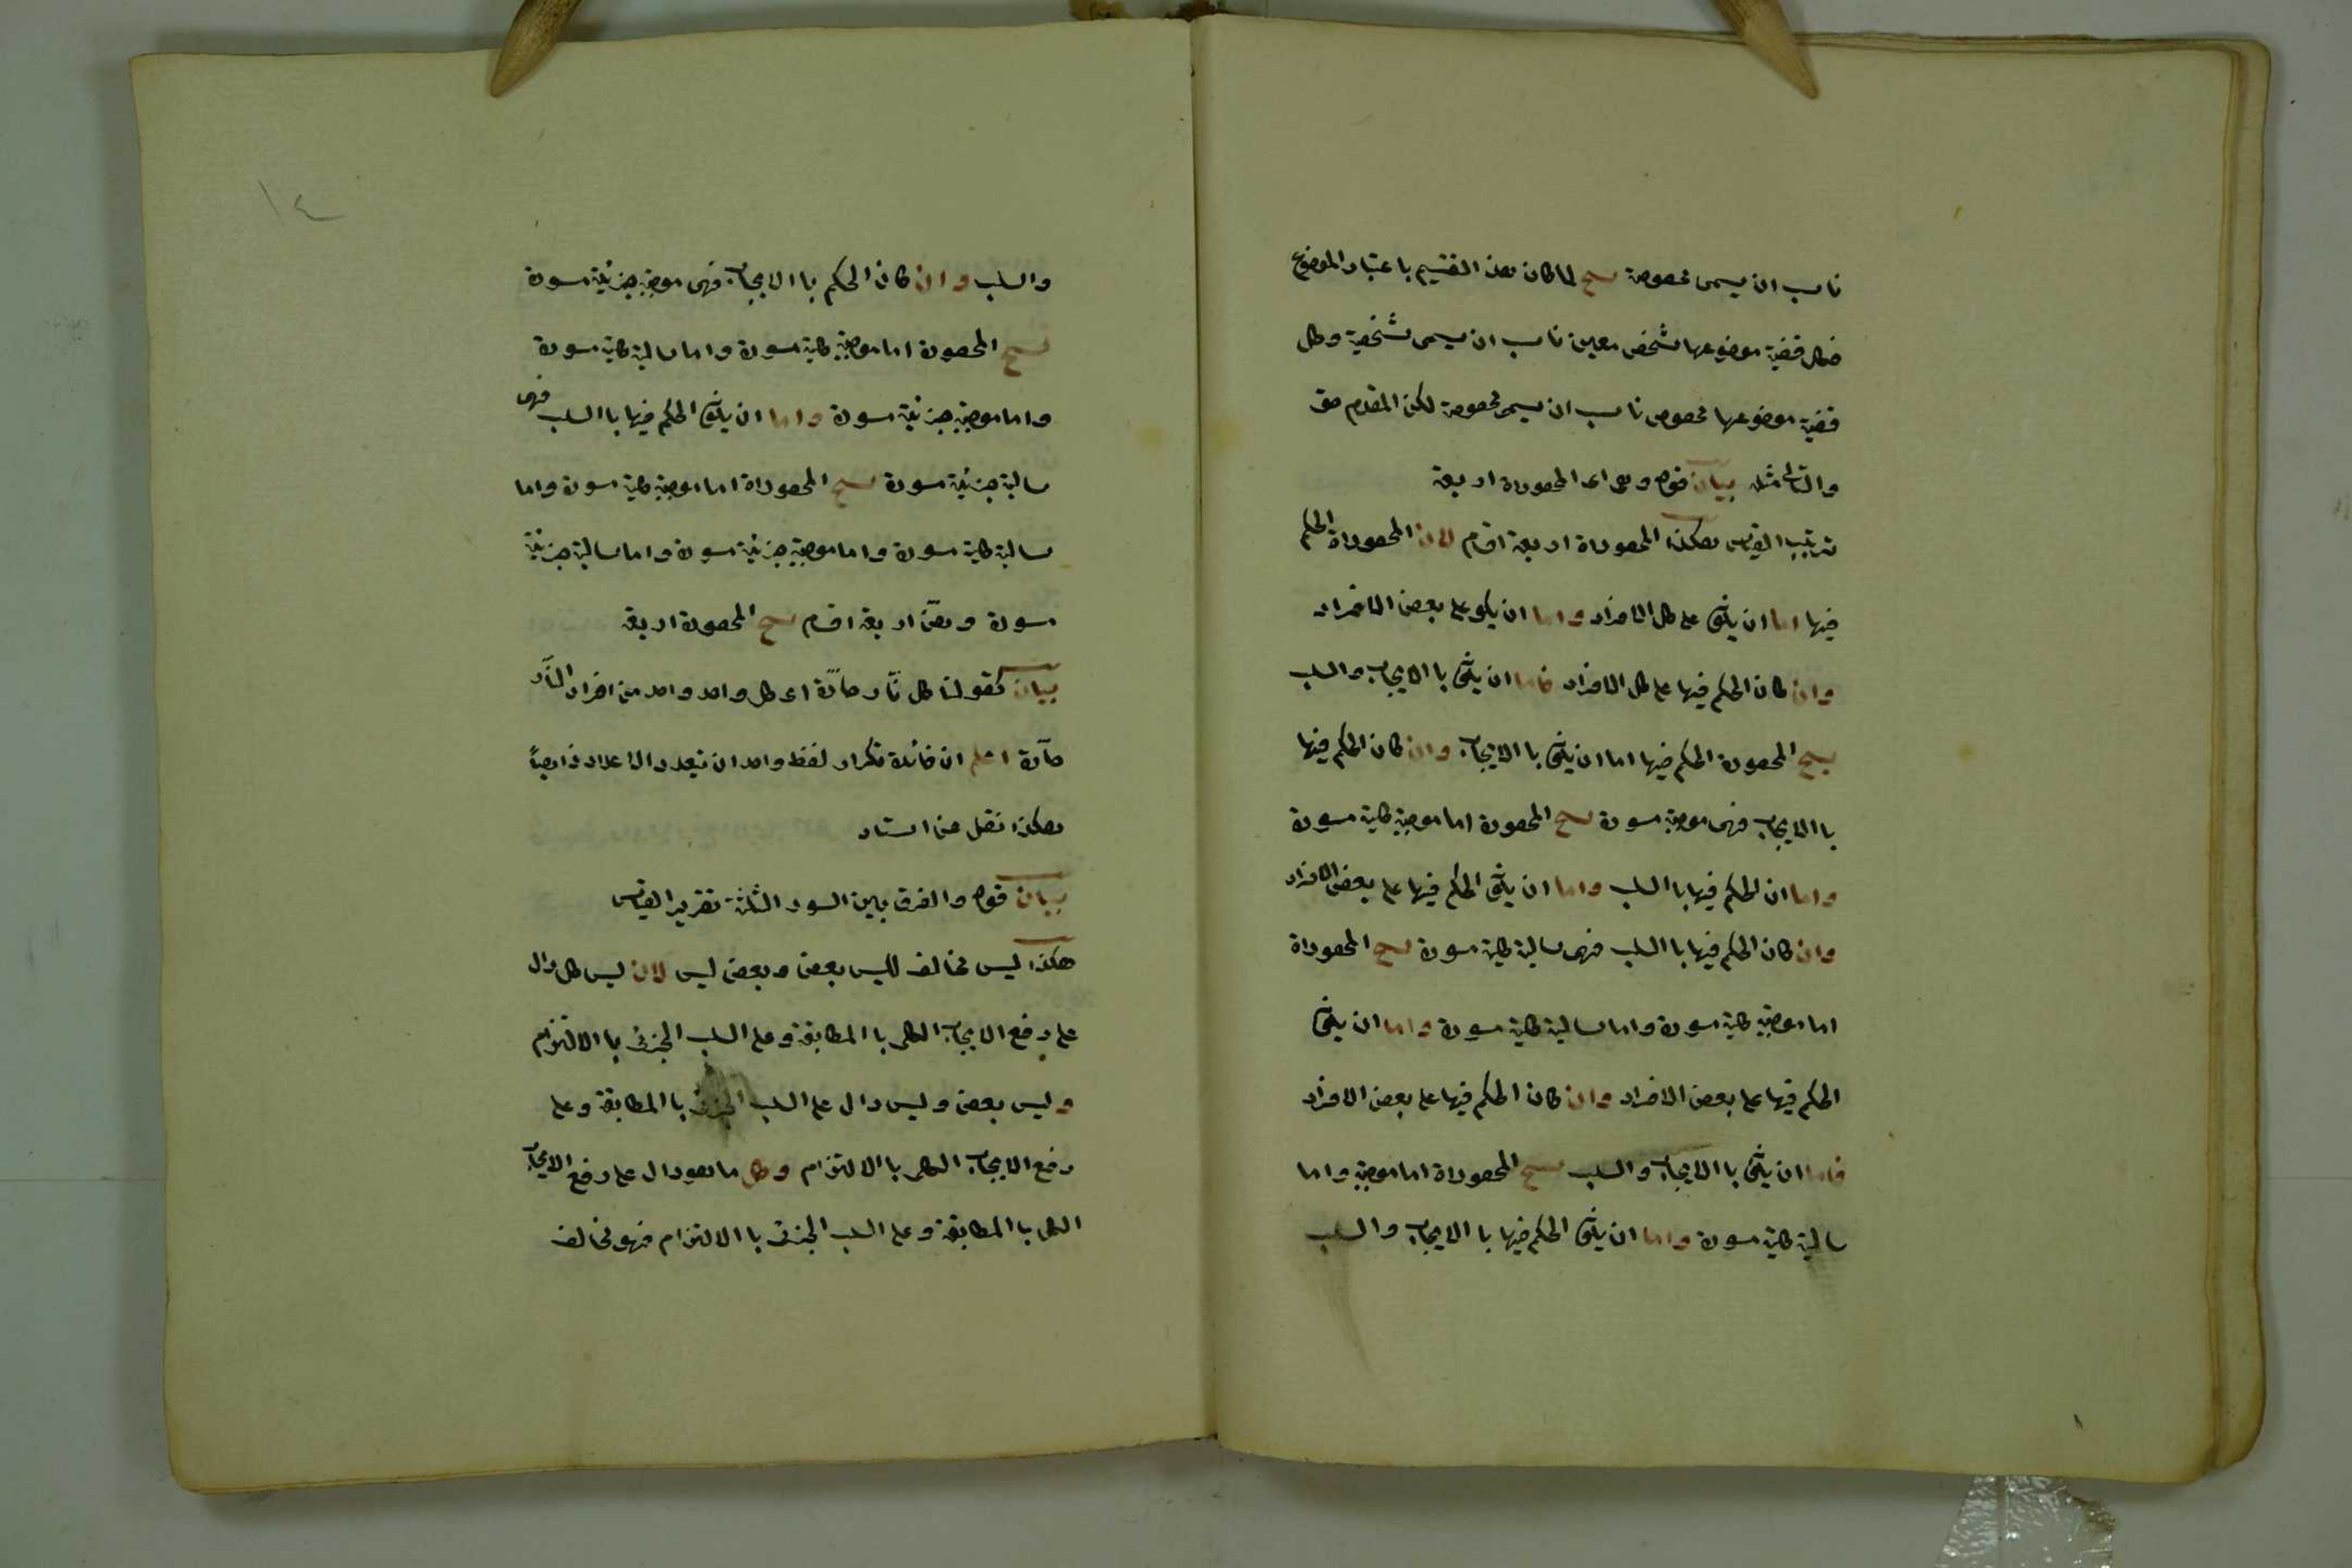 ناسب ان يسمى مخصوصة ينتج لما كان هذا التقسيم باعتبار الموضوع
فكل قضية موضوعها شخص معين ناسب ان يسمى شخصية وكل
قضية موضوعها مخصوص ناسب ان يسمى مخصوصة لكن المقدم حق
والتالى مثله بيان قوله وهى اى المحصورة اربعة
ترتيب القياس هكذا المحصوراة اربعة اقسام لان المحصوراة الحكم
فيها اما ان يكون على كل الافراد واما ان يكون على بعض الافراد
وان كان الحكم فيها على كل الافراد فاما ان يكون با الايجاب والسلب
ينتج المحصورة الحكم فيها اما ان يكون با الايجاب وان كان الحكم فيها
با الايجاب فهى موجبة مسورة ينتج المحصورة اما موجبة كلية مسورة
واما ان الحكم فيها با السلب واما ان يكون الحكم فيها على بعض الافراد
وان كان الحكم فيها با السلب فهى سالبة كلية مسورة ينتج المحصوراة
اما موجبة كلية مسورة واما سالبة كلية مسورة واما ان يكون
الحكم فيها على بعض الافراد وان كان الحكم فيها على بعض الافراد
فاما ان يكون با الايجاب والسلب ينتج المحصوراة اما موجبة واما
سالبة كلية مسورة واما ان يكون الحكم فيها با الايجاب والسلب
١٤
والسلب وان كان الحكم با الايجاب فهى موجبة جزئية مسورة
ينتج المحصورة اما موجبة كلية مسورة واما سالبة كلية مسورة
واما موجبة جزئية مسورة واما ان يكون الحكم فيها با السلب فهى
سالبة جزئية مسورة ينتج المحصوراة اما موجبة كلية مسورة واما
سالبة كلية مسورة واما موجبة جزئية مسورة واما سالبة جزئية
مسورة وهى اربعة اقسام ينتج المحصورة اربعة
بيان كقولنا كل نار حارة اى كل واحد واحد من افراد النار
حارة اعلم ان فائدة تكرار لفظ واحد ان تعدد الاعداد
هكذا نقل عن استاد
بيان قوله والفرق بين السور الثلثة تقرير القياس
هكذا ليس مخالف لليس بعض وبعض ليس لان ليس كل دال
على رفع الايجاب الكلى با المطابقة وعلى السلب الجزئى با الالتزام
وليس بعض وليس دال على السلب الجزئى با المطابقة وعلى
رفع الايجاب الكلى با الالتزام وكل ما هو دال على رفع الايجاب
الكلى با المطابقة وعلى السلب الجزئى با الالتزام فهو مخالف